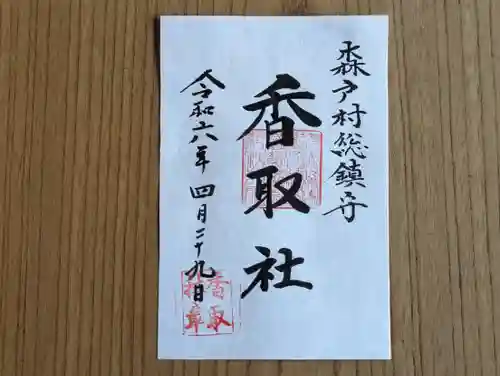 森戸村総鎮守
香取社
令和六年 四月二十九日
香取
社章